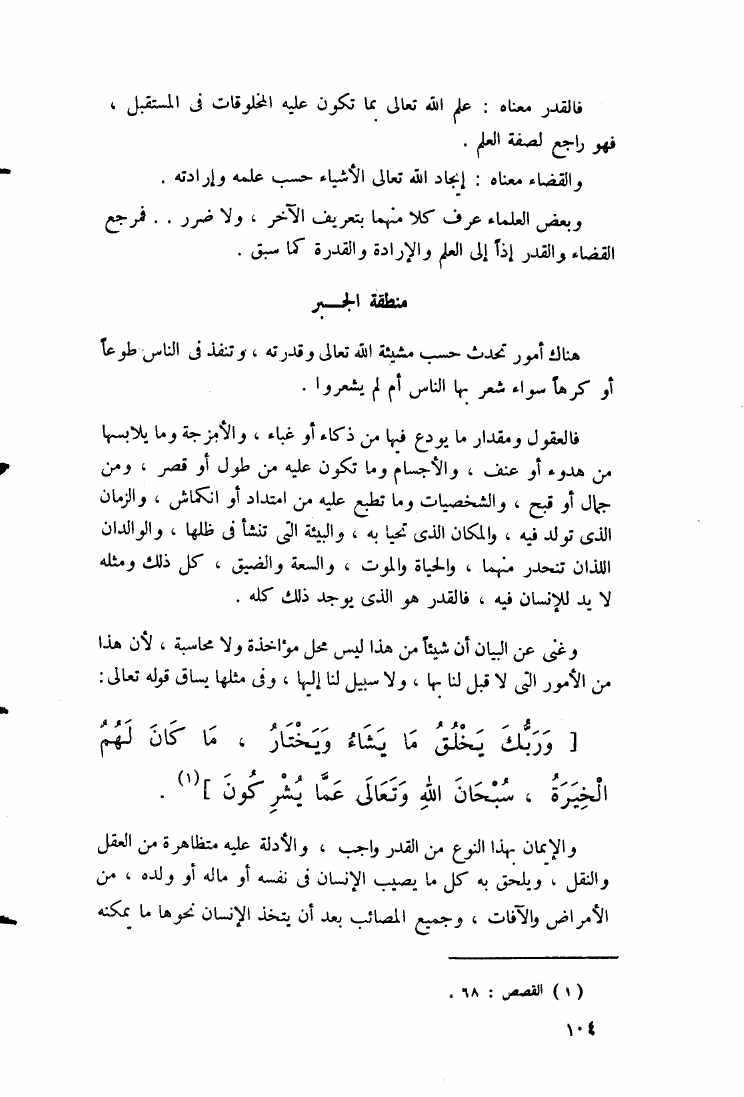 فالقدر معناه : علم الله تعالى بما تكون عليه المخلوقات فى المستقبل ،
فهو راجع لصفة العلم .
والقضاء معناه : إيجاد الله تعالى الأشياء حسب علمه وإرادته .
وبعض العلماء عرف كلا منهما بتعريف الآخر ، ولا ضرر . . فمرجع
القضاء والقدر إذاً إلى العلم والإرادة والقدرة كما سبق .
منطقة الجـــبر
هناك أمور تحدث حسب مشيئة الله تعالى وقدرته ، وتنفذ فى الناس طوعاً
أو كرهاً سواء شعر بها الناس أم لم يشعروا .
فالعقول ومقدار ما يودع فيها من ذكاء أو غباء ، والأمزجة وما يلابسها
من هدوء أو عنف ، والأجسام وما تكون عليه من طول أو قصر ، ومن
جمال أو قبح ، والشخصيات وما تطبع عليه من امتداد أو انكماش ، والزمان
الذى تولد فيه ، والمكان الذى تحيا به ، والبيئة التى تنشأ فى ظلها ، والوالدان
اللذان تنحدر منهما ، والحياة والموت ، والسعة والضيق ، كل ذلك ومثله
لا يد للإنسان فيه ، فالقدر هو الذى يوجد ذلك كله .
وغنى عن البيان أن شيئاً من هذا ليس محل مؤاخذة ولا محاسبة ، لأن هذا
من الأمور التى لا قبل لنا بها ، ولا سبيل لنا إليها ، وفى مثلها يساق قوله تعالى :
[ وَرَبُّكَ يَخْلُقُ مَا يَشَاءُ وَيَخْتَارُ ، مَا كَانَ لَهُمُ
الْخِيَرَةُ ، سُبْحَانَ اللهِ وَتَعَالَى عَمَّا يُشْرِكُونَ ](١) .
والإيمان بهذا النوع من القدر واجب ، والأدلة عليه متظاهرة من العقل
والنقل ، ويلحق به كل ما يصيب الإنسان فى نفسه أو ماله أو ولده ، من
الأمراض والآفات ، وجميع المصائب بعد أن يتخذ الإنسان نحوها ما يمكنه
(١) القصص : ٦٨ .
١٠٤